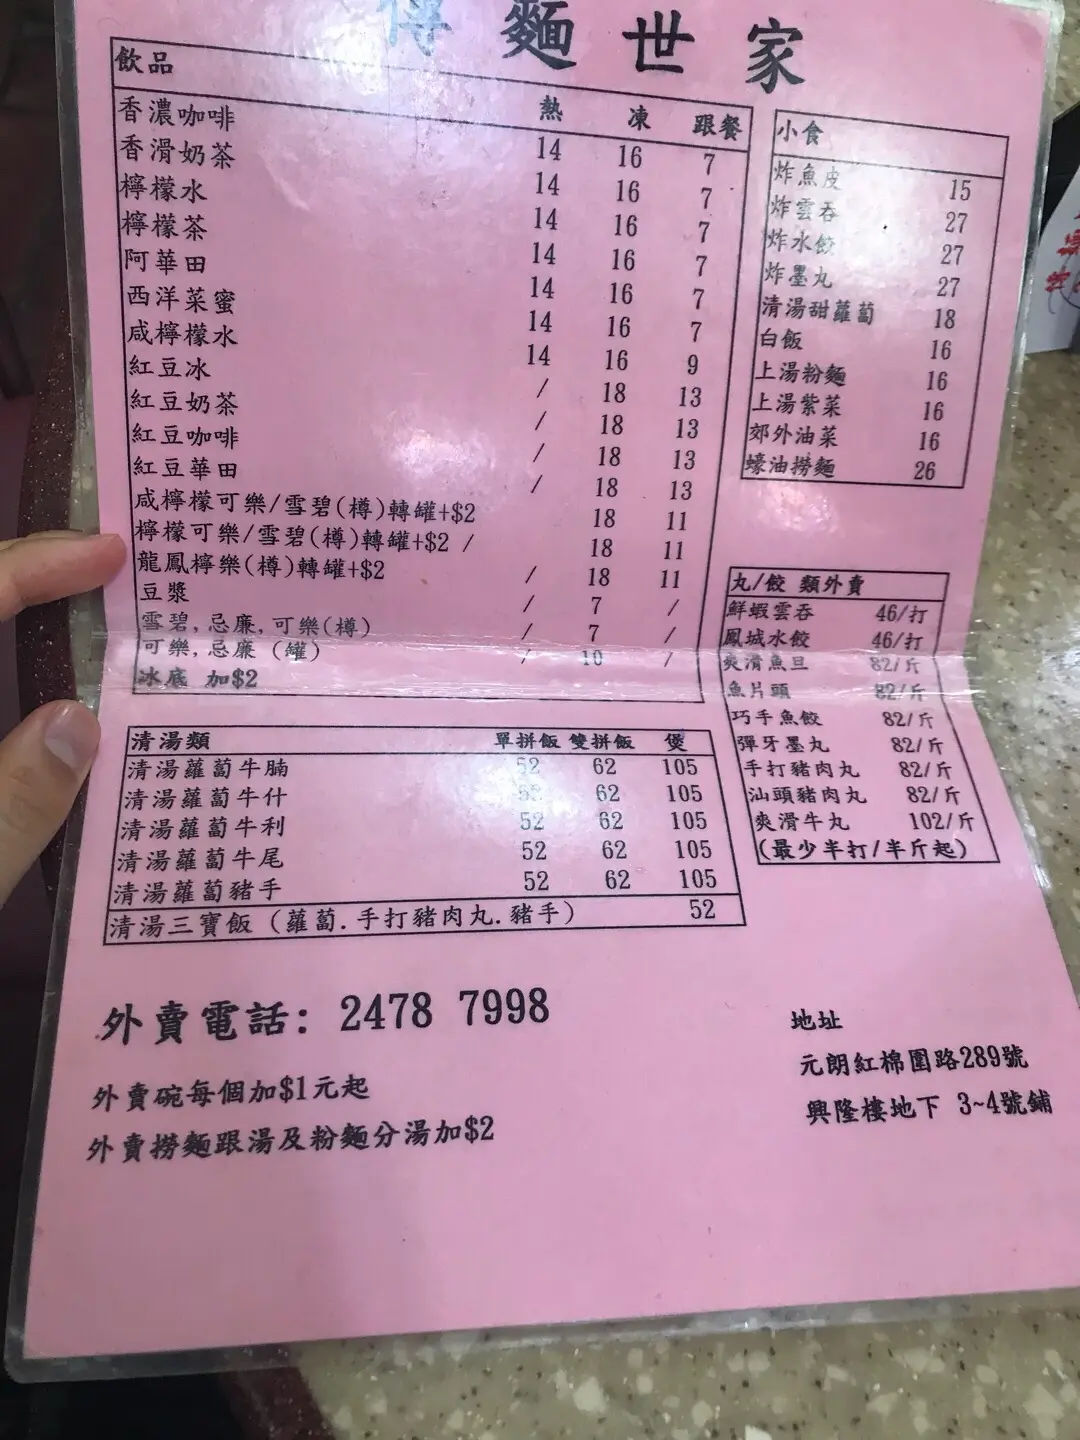 傳麵世家
飲品 熱 凍 跟餐
香濃咖啡 14 16 7
香滑奶茶 14 16 7
檸檬水 14 16 7
檸檬茶 14 16 7
阿華田 14 16 7
西洋菜蜜 14 16 7
咸檸檬水 14 16 9
紅豆冰 / 18 13
紅豆奶茶 / 18 13
紅豆咖啡 / 18 13
紅豆華田 / 18 13
咸檸檬可樂/雪碧(樽)轉罐+$2 18 11
檸檬可樂/雪碧(樽)轉罐+$2 / 18 11
龍鳳檸樂(樽)轉罐+$2 / 18 11
豆漿 / 7 /
雪碧,忌廉,可樂(樽) / 7 /
可樂,忌廉 (罐) / 10 /
冰底 加$2
小食
炸魚皮 15
炸雲吞 27
炸水餃 27
炸墨丸 27
清湯甜蘿蔔 18
白飯 16
上湯粉麵 16
上湯紫菜 16
郊外油菜 16
蠔油撈麵 26
丸/餃 類外賣
鮮蝦雲吞 46/打
鳳城水餃 46/打
爽滑魚旦 82/斤
魚片頭 82/斤
巧手魚餃 82/斤
彈牙墨丸 82/斤
手打豬肉丸 82/斤
汕頭豬肉丸 82/斤
爽滑牛丸 102/斤
(最少半打/半斤起)
清湯類 單拼飯 雙拼飯 煲
清湯蘿蔔牛腩 52 62 105
清湯蘿蔔牛什 52 62 105
清湯蘿蔔牛利 52 62 105
清湯蘿蔔牛尾 52 62 105
清湯蘿蔔豬手 52 62 105
清湯三寶飯 (蘿蔔.手打豬肉丸.豬手) 52
外賣電話: 2478 7998
外賣碗每個加$1元起
外賣撈麵跟湯及粉麵分湯加$2
地址
元朗紅棉圍路289號
興隆樓地下 3~4號鋪